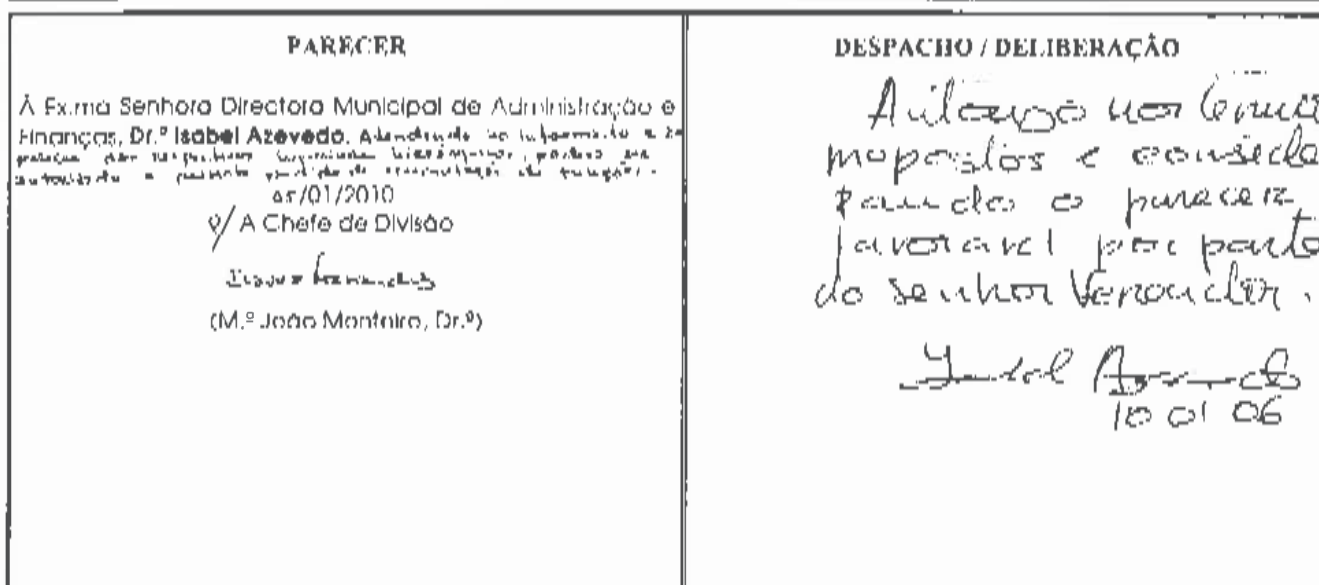 PARECER
À Ex.ma Senhora Directora Municipal de Administração e
Finanças, Dr.ª Isabel Azevedo. Atendendo ao informado e
autorizado o pedido de acumulação de funções.
05/01/2010
P/ A Chefe de Divisão
(M.ª João Monteiro, Dr.ª)
DESPACHO / DELIBERAÇÃO
Autorizo nos termos
propostos e conside
rando o parecer
favorável por parte
do senhor Vereador.
Isabel Azevedo
10 01 06